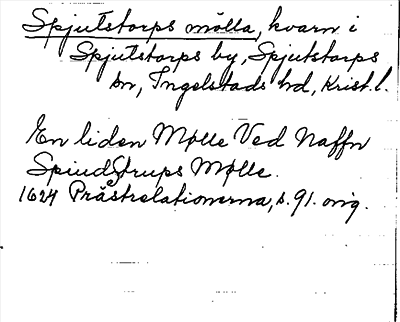 Spjutstorps mölla, kvarn i
Spjutstorps by, Spjutstorps
sn, Ingelstads hd, Krist. l.
En liden Mølle Ved Naffn
SpiudStrups Mølle.
1624 Prästrelationerna, s. 91. orig.